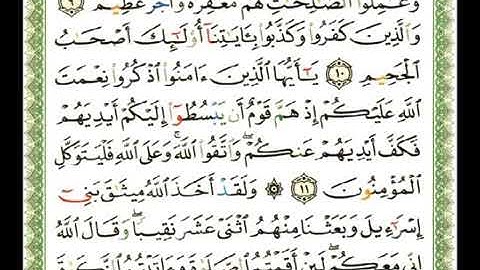 وَعَمِلُوا۟ ٱلصَّٰلِحَٰتِ لَهُم مَّغْفِرَةٌ وَأَجْرٌ عَظِيمٌ ٩
وَٱلَّذِينَ كَفَرُوا۟ وَكَذَّبُوا۟ بِـَٔايَٰتِنَآ أُو۟لَٰٓئِكَ أَصْحَٰبُ
ٱلْجَحِيمِ ١٠ يَٰٓأَيُّهَا ٱلَّذِينَ ءَامَنُوا۟ ٱذْكُرُوا۟ نِعْمَتَ
ٱللَّهِ عَلَيْكُمْ إِذْ هَمَّ قَوْمٌ أَن يَبْسُطُوٓا۟ إِلَيْكُمْ أَيْدِيَهُمْ
فَكَفَّ أَيْدِيَهُمْ عَنكُمْ ۖ وَٱتَّقُوا۟ ٱللَّهَ ۚ وَعَلَى ٱللَّهِ فَلْيَتَوَكَّلِ
ٱلْمُؤْمِنُونَ ١١ ۞ وَلَقَدْ أَخَذَ ٱللَّهُ مِيثَٰقَ بَنِىٓ
إِسْرَٰٓءِيلَ وَبَعَثْنَا مِنْهُمُ ٱثْنَىْ عَشَرَ نَقِيبًا ۖ وَقَالَ ٱللَّهُ
إِنِّى مَعَكُمْ ۖ لَئِنْ أَقَمْتُمُ ٱلصَّلَوٰةَ وَءَاتَيْتُمُ ٱلزَّكَوٰةَ